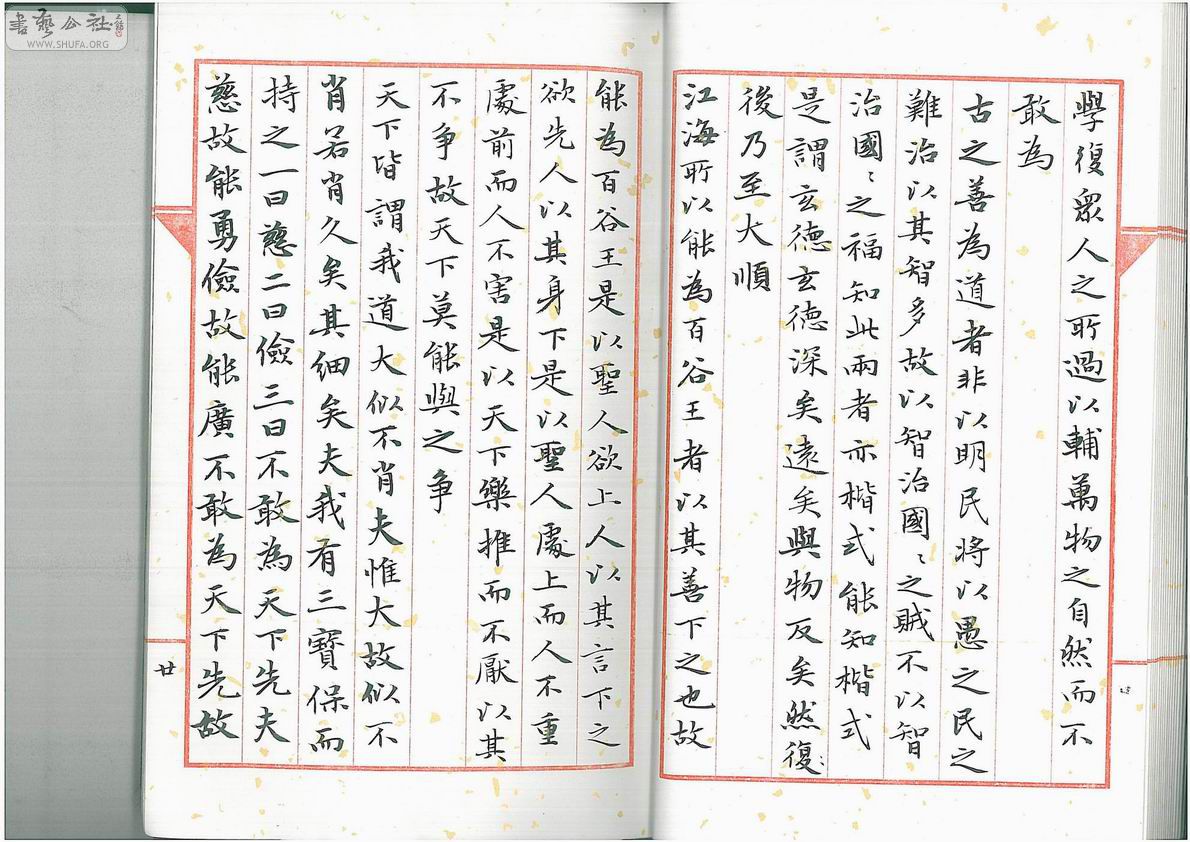 學復衆人之所過以輔萬物之自然而不
敢為
古之善為道者非以明民將以愚之民之
難治以其智多故以智治國〻之賊不以智
治國〻之福知此兩者亦楷式能知楷式
是謂玄德玄德深矣遠矣與物反矣然復〻
後乃至大順
江海所以能為百谷王者以其善下之也故
能為百谷王是以聖人欲上人以其言下之
欲先人以其身下是以聖人處上而人不重
處前而人不害是以天下樂推而不厭以其
不爭故天下莫能與之爭
天下皆謂我道大似不肖夫惟大故似不
肖若肖久矣其細矣夫我有三寶保而
持之一曰慈二曰儉三曰不敢為天下先夫
慈故能勇儉故能廣不敢為天下先故
廿
書藝公社
WWW.SHUFA.ORG